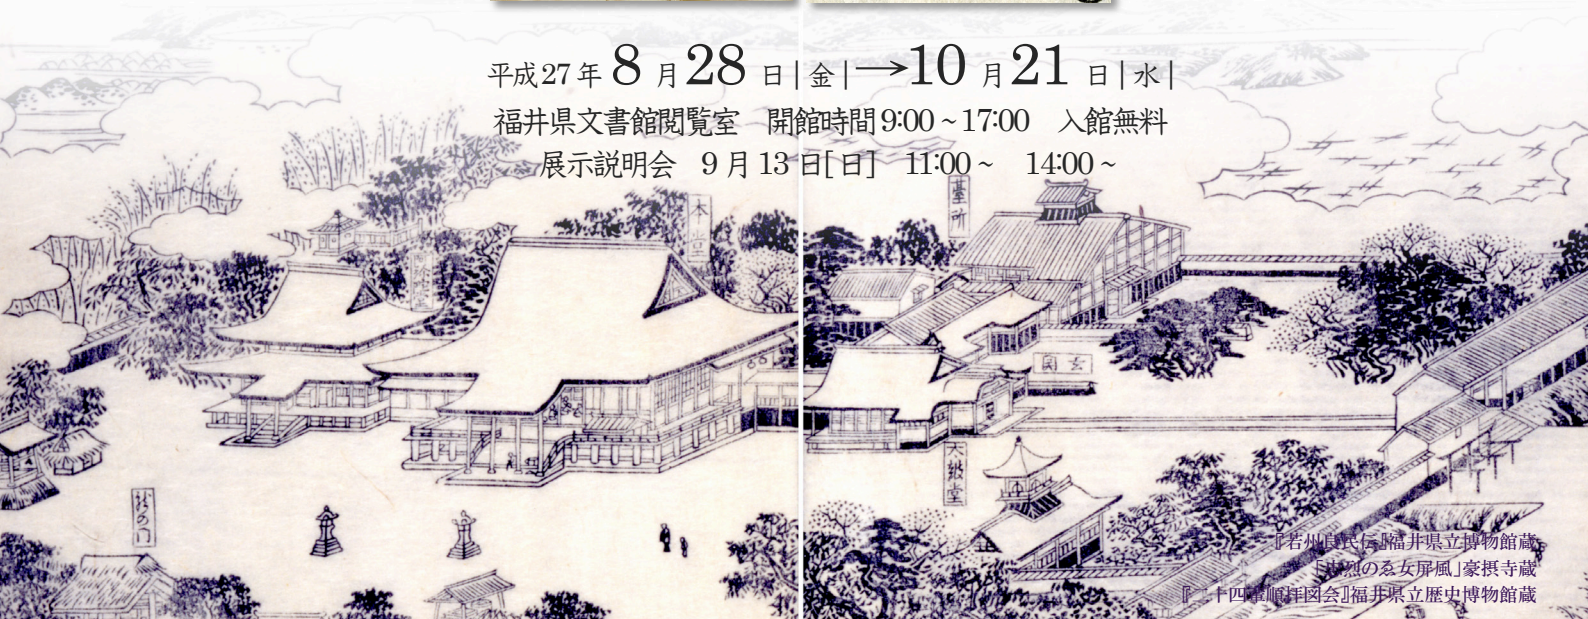 平成27年 8月28日|金|→10月21日|水|
福井県文書館閲覧室 開館時間9:00~17:00 入館無料
展示説明会 9月13日[日] 11:00~ 14:00~
本堂
臺所
玄関
大鼓堂
『若州良民伝』福井県立博物館蔵
のゑ女屏風」豪摂寺蔵
『二十四輩順拝図会』福井県立歴史博物館蔵